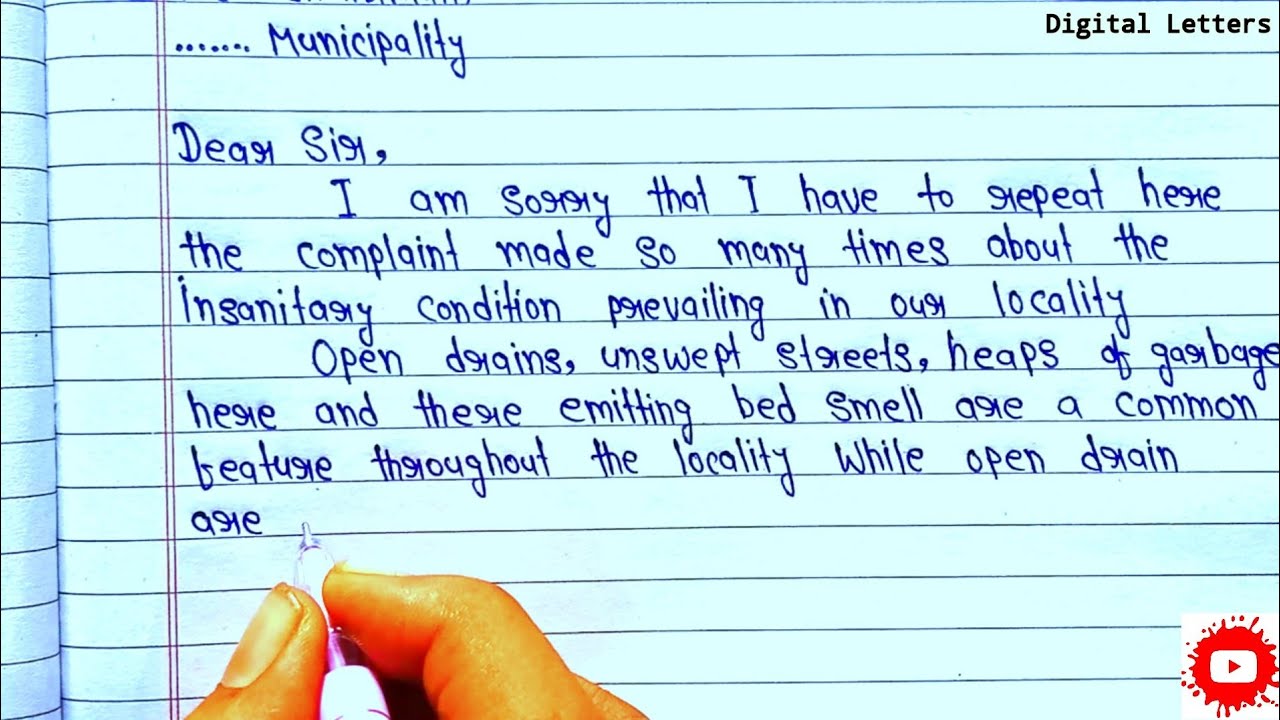 Digital Letters
....... Municipality
Dear Sir,
I am sorry that I have to repeat here
the complaint made so many times about the
insanitary condition prevailing in our locality
Open drains, unswept streets, heaps of garbage
here and there emitting bed smell are a common
beature throughout the locality While open drain
are